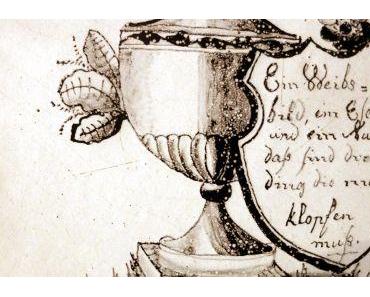 Ein Weibs=
bild, ein Es
und ein Nu
daß sind dre
ding die m
klopfen
muß.